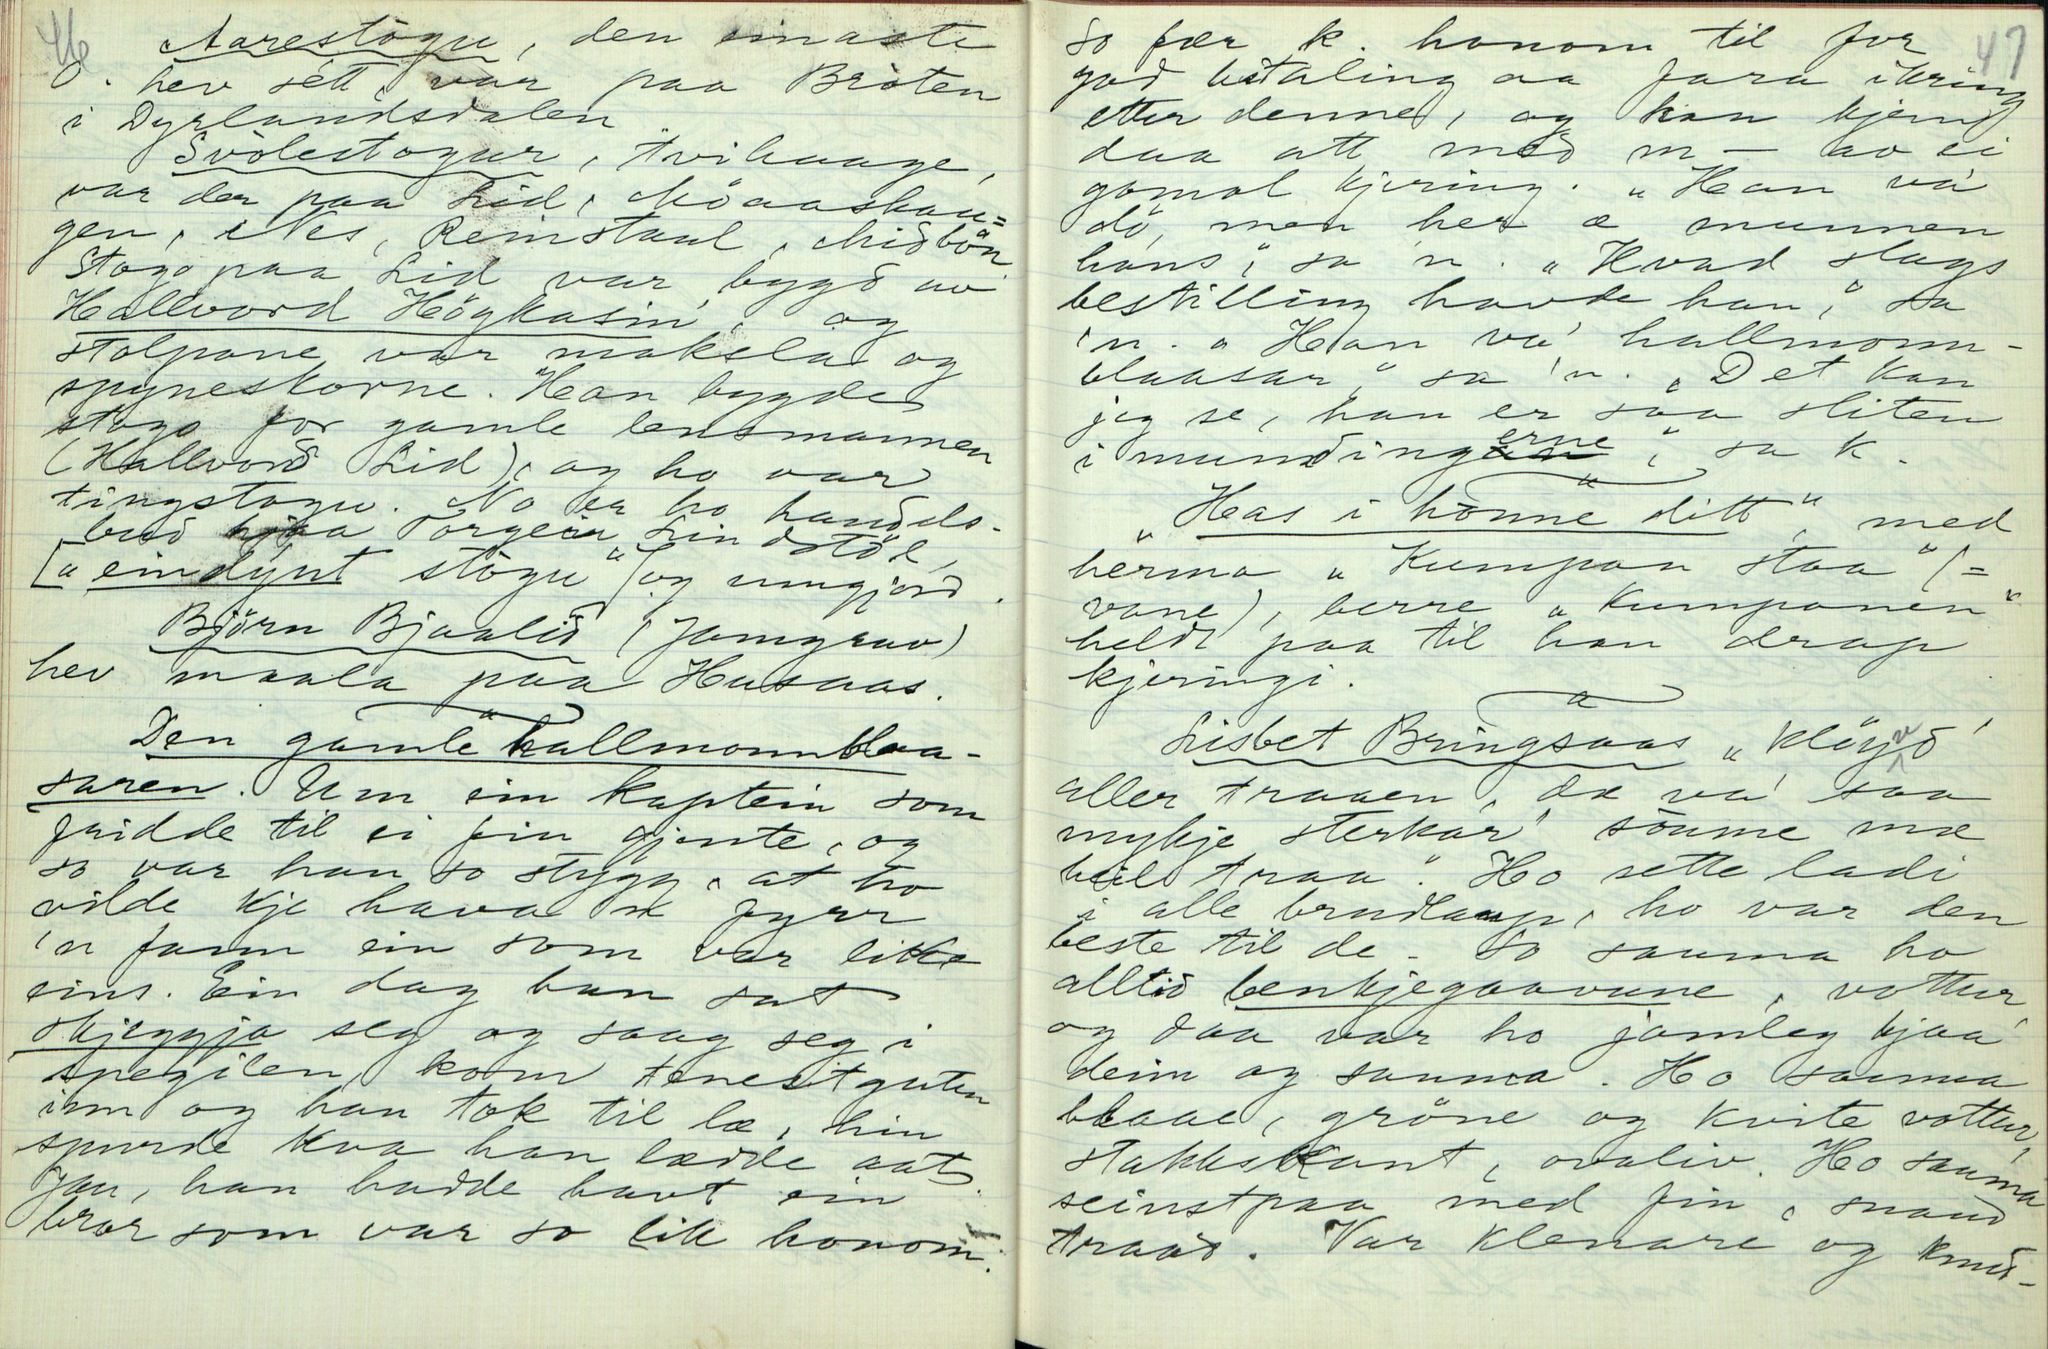 46
Aarestögu, den einaste
O. hev sétt, var paa Bröten
i Dyrlandsdalen.
Svölestogur, tvihaage,
var der paa Lid, Möaashau=
gen, Nes, Reinstaul, Midbön.
Stogo paa Lid var bygd av
Hallvord Högkasin, og
stolpane var maksla og
spyneskorne. Han bygde
stogo for gamle lensmannen
(Hallvord Lid), og ho var
tingstogu. No er ho handels-
bud hjaa Torgeir Lindstöl,
["eindynt stögu" og umgjord.
Björn Bjaalid (Jamgrav)
hev maala paa Husaas.
Den gamle hallmonnblaa-
saren. Um ein kaptein som
fridde til ei fin gjente, og
so var han so stygg, at ho
vilde kje hava 'n fyrr
'n fann ein som var like
eins. Ein dag han sat
skjeggja seg og saag seg i
spegilen, kom tenestguten
inn og han tok til læ, hin
spurde kva han lædde aat.
Jau, han hadde havt ein
bror som var so lik honom.
47
So fær k. honom til for
god betaling aa fara ikring
etter denne, og han kjem
daa att med m— av ei
gomol kjering. "Han va'
dö, men her æ munnen
hans", sa 'n. "Hvad slags
bestilling havde han," sa
'n. "Han va' hallmonn-
blaasar," sa 'n. "Det kan
jeg se, han er saa sliten
i mundingerne," sa k.
"Has i hönne ditt", med
herma "Kumpan staa" (=
vane), berre "Kumpanen"
heldt paa til han drap
kjeringi.
Lisbet Bringsaas "kløyvd'
aller traaen, da va' saa
mykje sterkar' saume mæ
heil traa". Ho sette ladi
i alle brudlaup, ho var den
beste til de. So sauma ho
alltid benkjegaavune, vottur,
og daa var ho jamleg hjaa
deim og sauma. Ho sauma
blaae, gröne og kvite vottur,
stakkskant, ovaliv. Ho sauma
seinstpaa med fin, snaud
traad. Var klenare og knud-